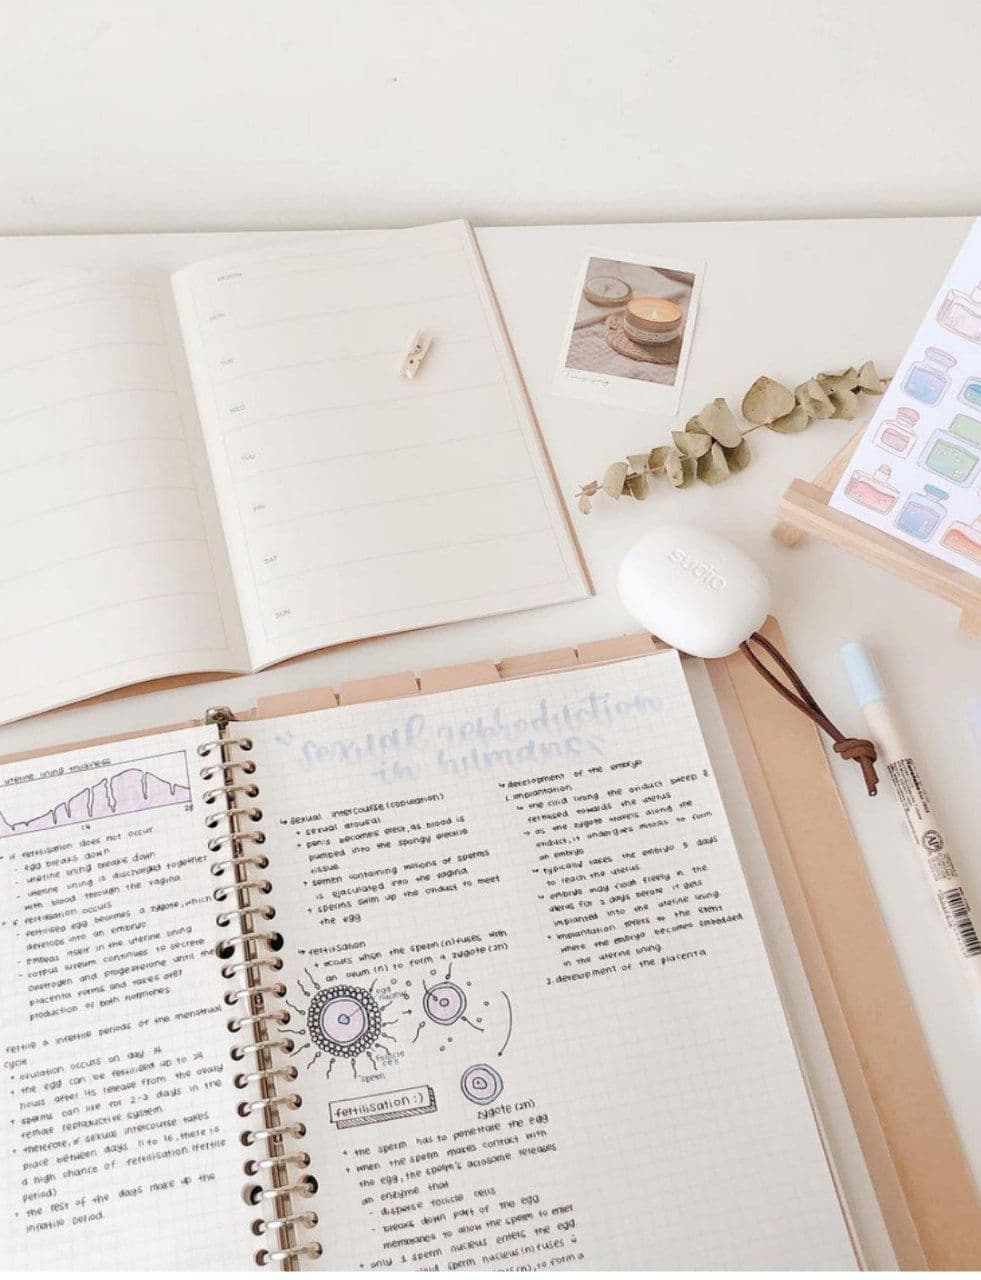 MONTH
MON
TUE
WED
THU
FRI
SAT
SUN
sudio
uterine lining thickness
14
28
• if fertilisation does not occur
- egg breaks down
- uterine lining breaks down
- uterine lining is discharged together
with blood through the vagina
• if fertilisation occurs
- fertilised egg becomes a zygote, which
develops into an embryo
- embeds itself in the uterine lining
- corpus luteum continues to secrete
oestrogen and progesterone until the
placenta forms and takes over
production of both hormones
fertile & infertile periods of the menstrual
cycle
• ovulation occurs on day 14
• the egg can be fertilised up to 24
hours after its release from the ovary
• sperms can live for 2-3 days in the
female reproductive system
• therefore, if sexual intercourse takes
place between days 11 to 16, there is
a high chance of fertilisation (fertile
period)
• the rest of the days make up the
infertile period.
"sexual reproduction
in humans"
↳ sexual intercourse (copulation)
• sexual arousal
• penis becomes erect, as blood is
pumped into the spongy erectile
tissue
• semen containing millions of sperms
is ejaculated into the vagina
• sperms swim up the oviduct to meet
the egg
↳ fertilisation
• occurs when the sperm (n) fuses with
an ovum (n) to form a zygote (2n)
egg
nucleus
follicle
cell
sperm
fertilisation :)
zygote (2n)
• the sperm has to penetrate the egg
• when the sperm makes contact with
the egg, the sperm's acrosome releases
an enzyme that
- disperse follicle cells
- breaks down part of the egg
membrane to allow the sperm to enter
• only 1 sperm nucleus enters the egg
sperm nucleus (n) fuses
(n), to form a
↳ development of the embryo
1. implantation
↳ the cilia lining the oviduct sweep
fertilised towards the uterus
↳ as the zygote travels along the
oviduct, it undergoes mitosis to form
an embryo
↳ typically takes the embryo 5 days
to reach the uterus
↳ embryo may float freely in the
uterus for 2 days before it gets
implanted into the uterine lining
• implantation refers to the event
where the embryo becomes embedded
in the uterine lining
2. development of the placenta